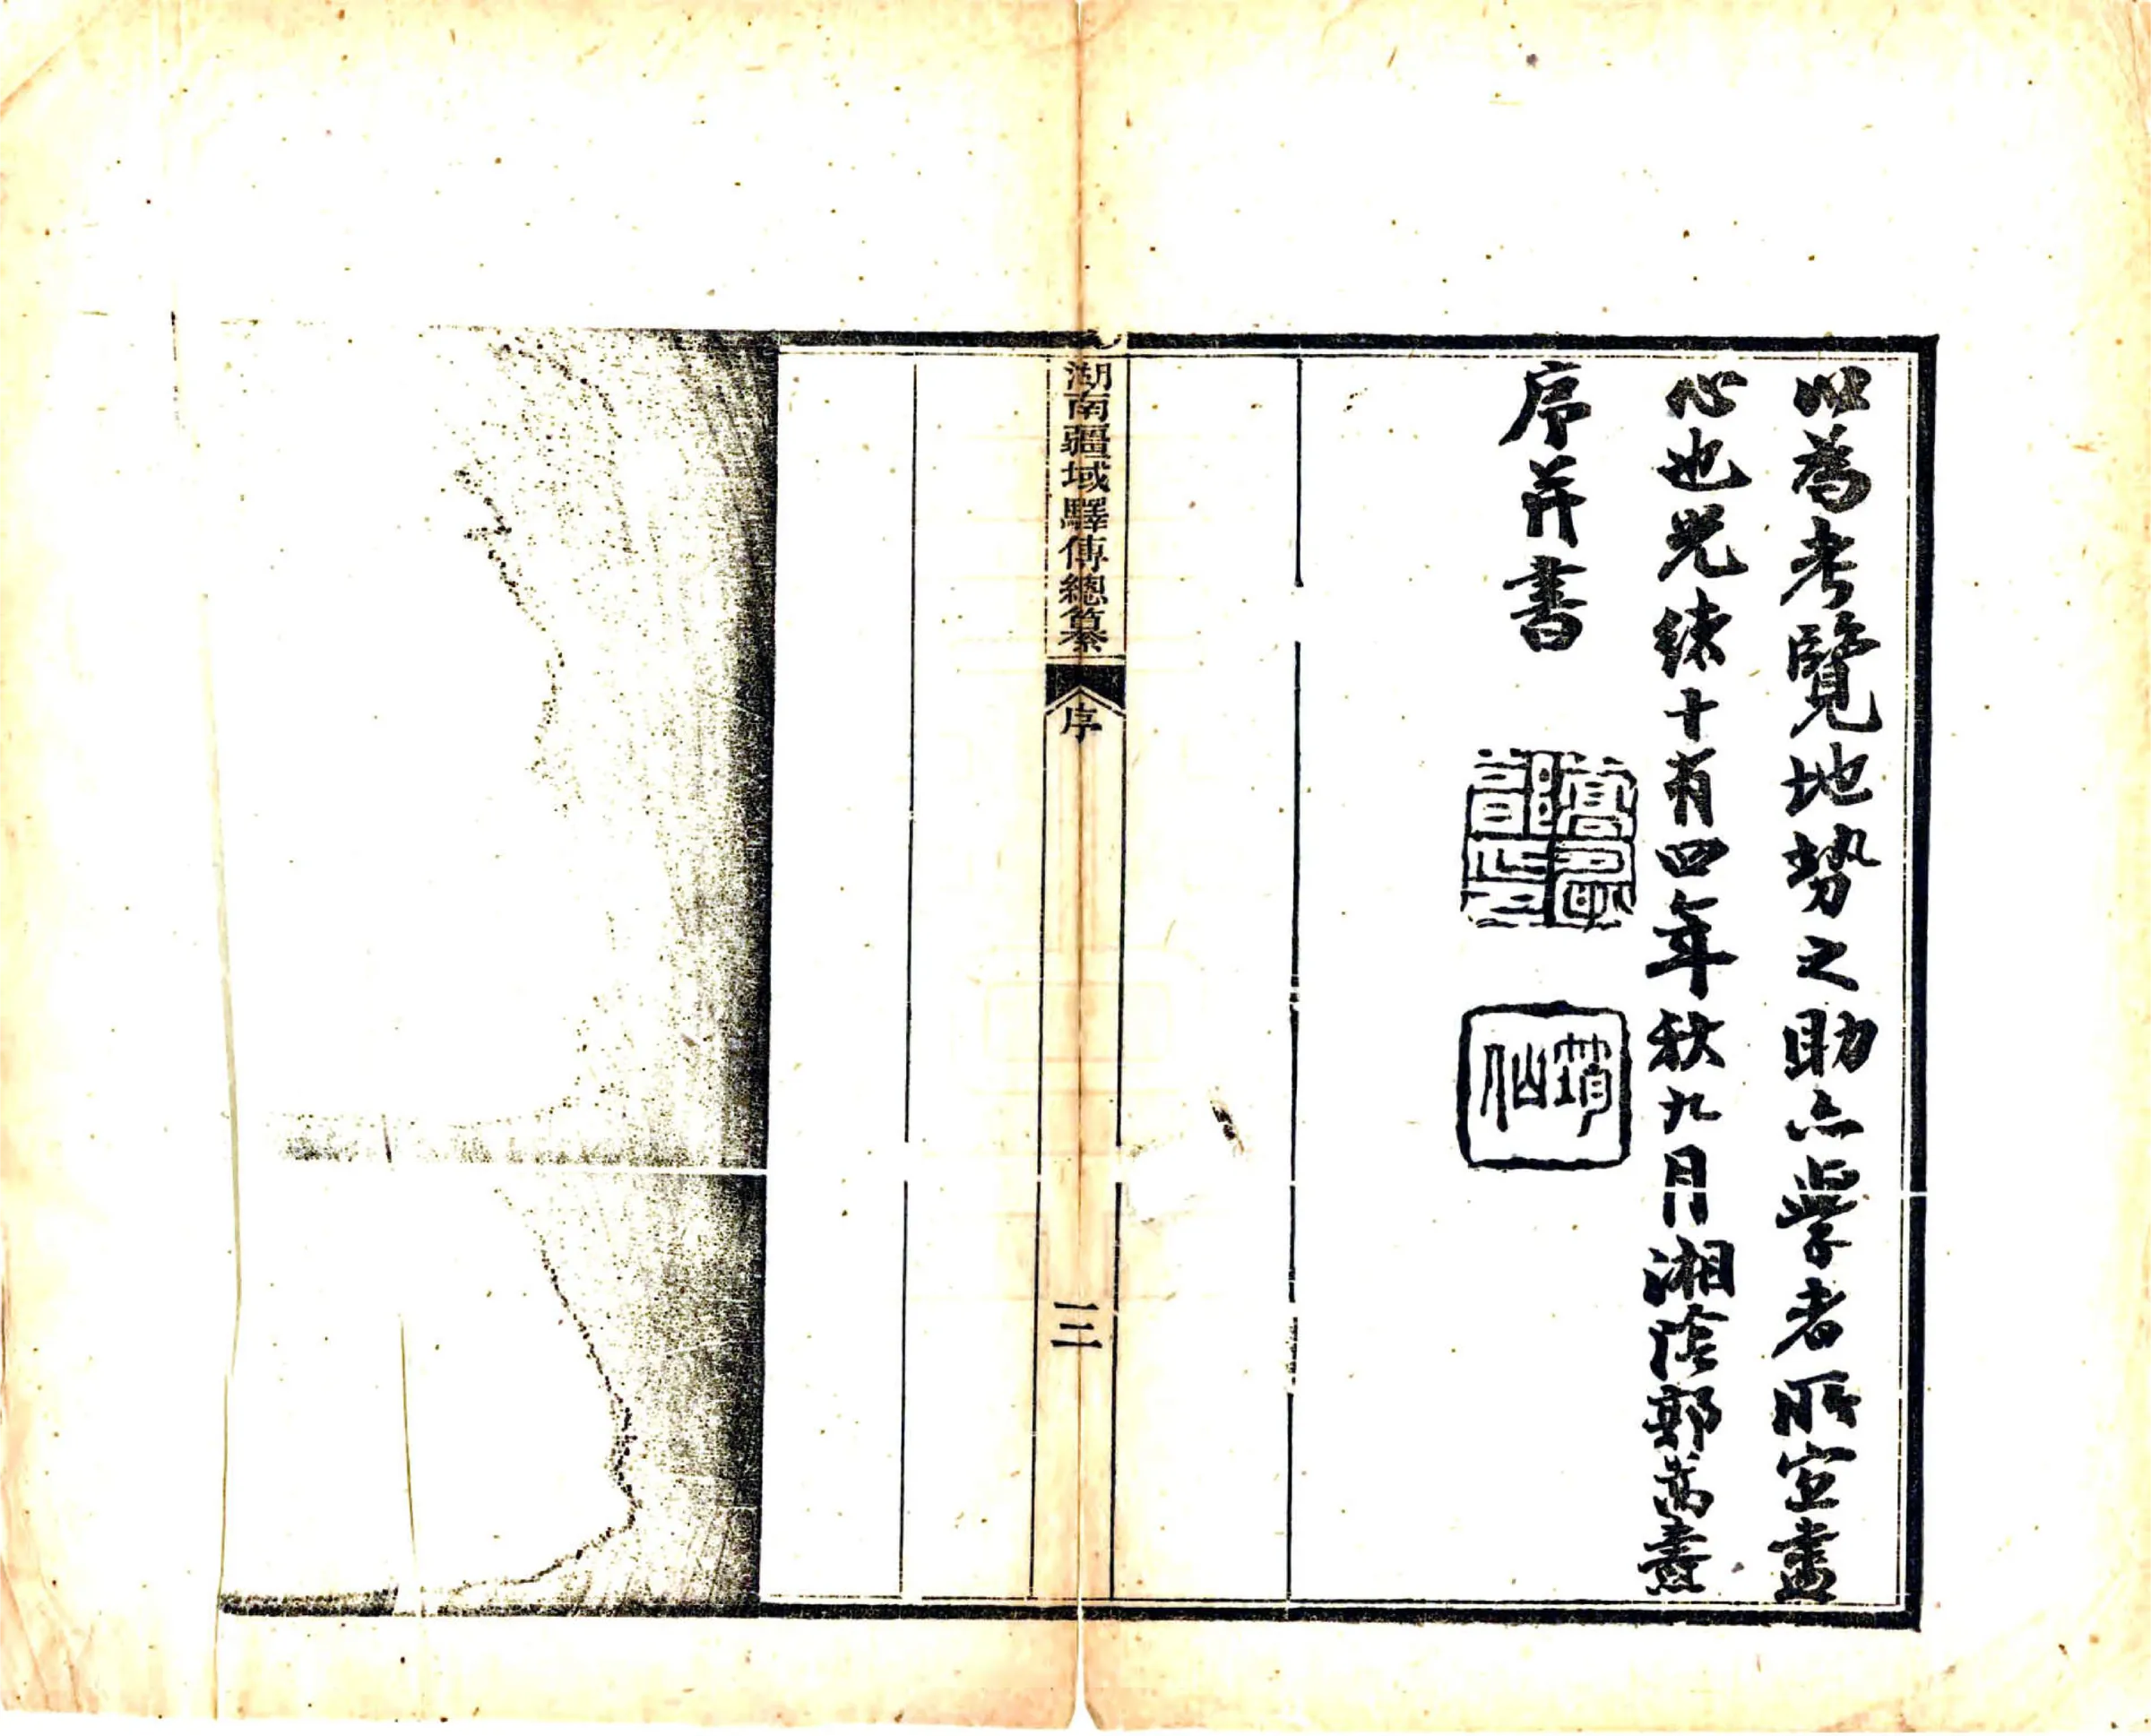 以為考覽地勢之助亦學者所宜盡
心也光緒十有四年秋九月湘陰郭嵩燾
序并書
筠仙
湖南疆域驛傳總纂
序
三